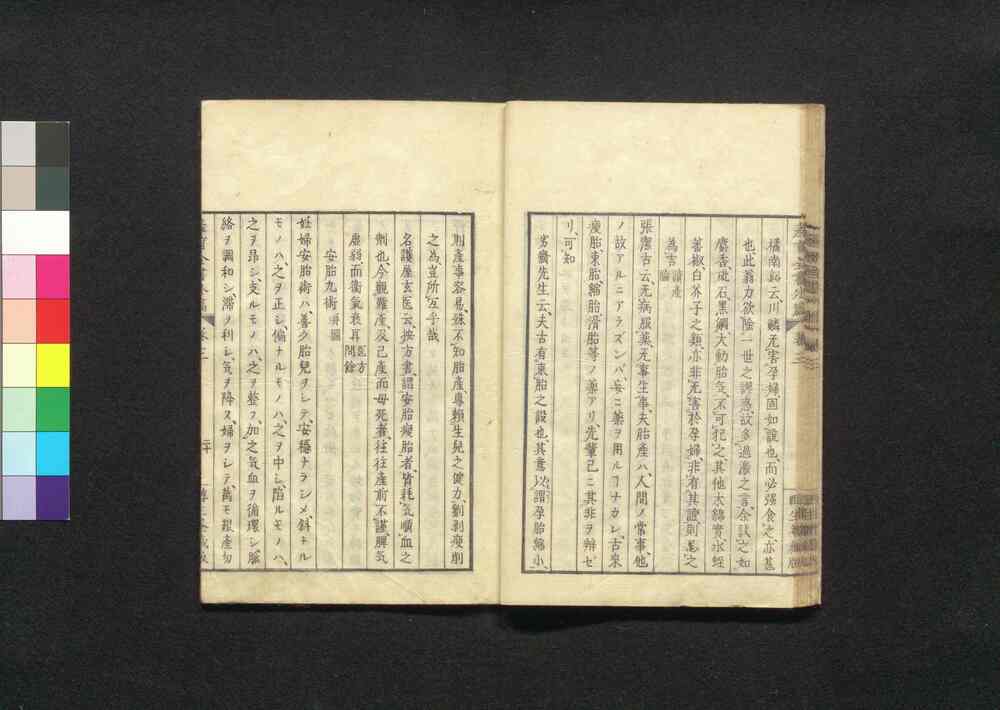 橘南谿云、川麟无害孕婦固如說也、而必强食之亦甚
也此翁力欲除一世之謬惑故多過激之言余試之如
麝香、砒石、黑鉛、大動胎気、不可犯之其他大綿實水蛭
蕃椒、白芥子之類亦非无害於孕婦、非有其證則忌之
為吉
張潔古云、无病服藥、无事生事、夫胎産ハ、人間ノ常事、他
ノ故アルニアラズンバ、妄ニ藥ヲ用ルヿナカレ、古來
瘦胎、束胎、縮胎、滑胎等ノ藥アリ、先輩已ニ其非ヲ辨ゼ
リ、可知
齋先生云、夫古有束胎之設也、其意以謂孕胎縮小、
則産事容易、殊不知胎産、專賴生兒之健力、剝瘦削
之為、豈所互乎哉
名護屋玄医云、按方書、謂安胎瘦胎者、皆耗気嘖血之
劑也、今觀難産、及已産而母死者、往往産前不謹、脾気
虛弱而衞氣衰耳 医方問餘
安胎九術
妊婦安胎術ハ、善ク胎兒ヲシテ、安穩ナラシメ、斜ナル
モノハ、之ヲ正シ、偏ナルモノハ、之ヲ中シ、陷ルモノハ、
之ヲ昂シ、支ルモノハ、之ヲ整フ、加之気血ヲ循環シ、脈
絡ヲ調和シ、滯ヲ利シ、気ヲ降ス、婦ヲシテ、萬モ艱産勿